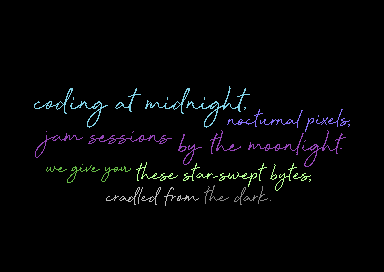 coding at midnight,
nocturnal pixels,
jam sessions by the moonlight.
we give you these star-swept bytes,
cradled from the dark.